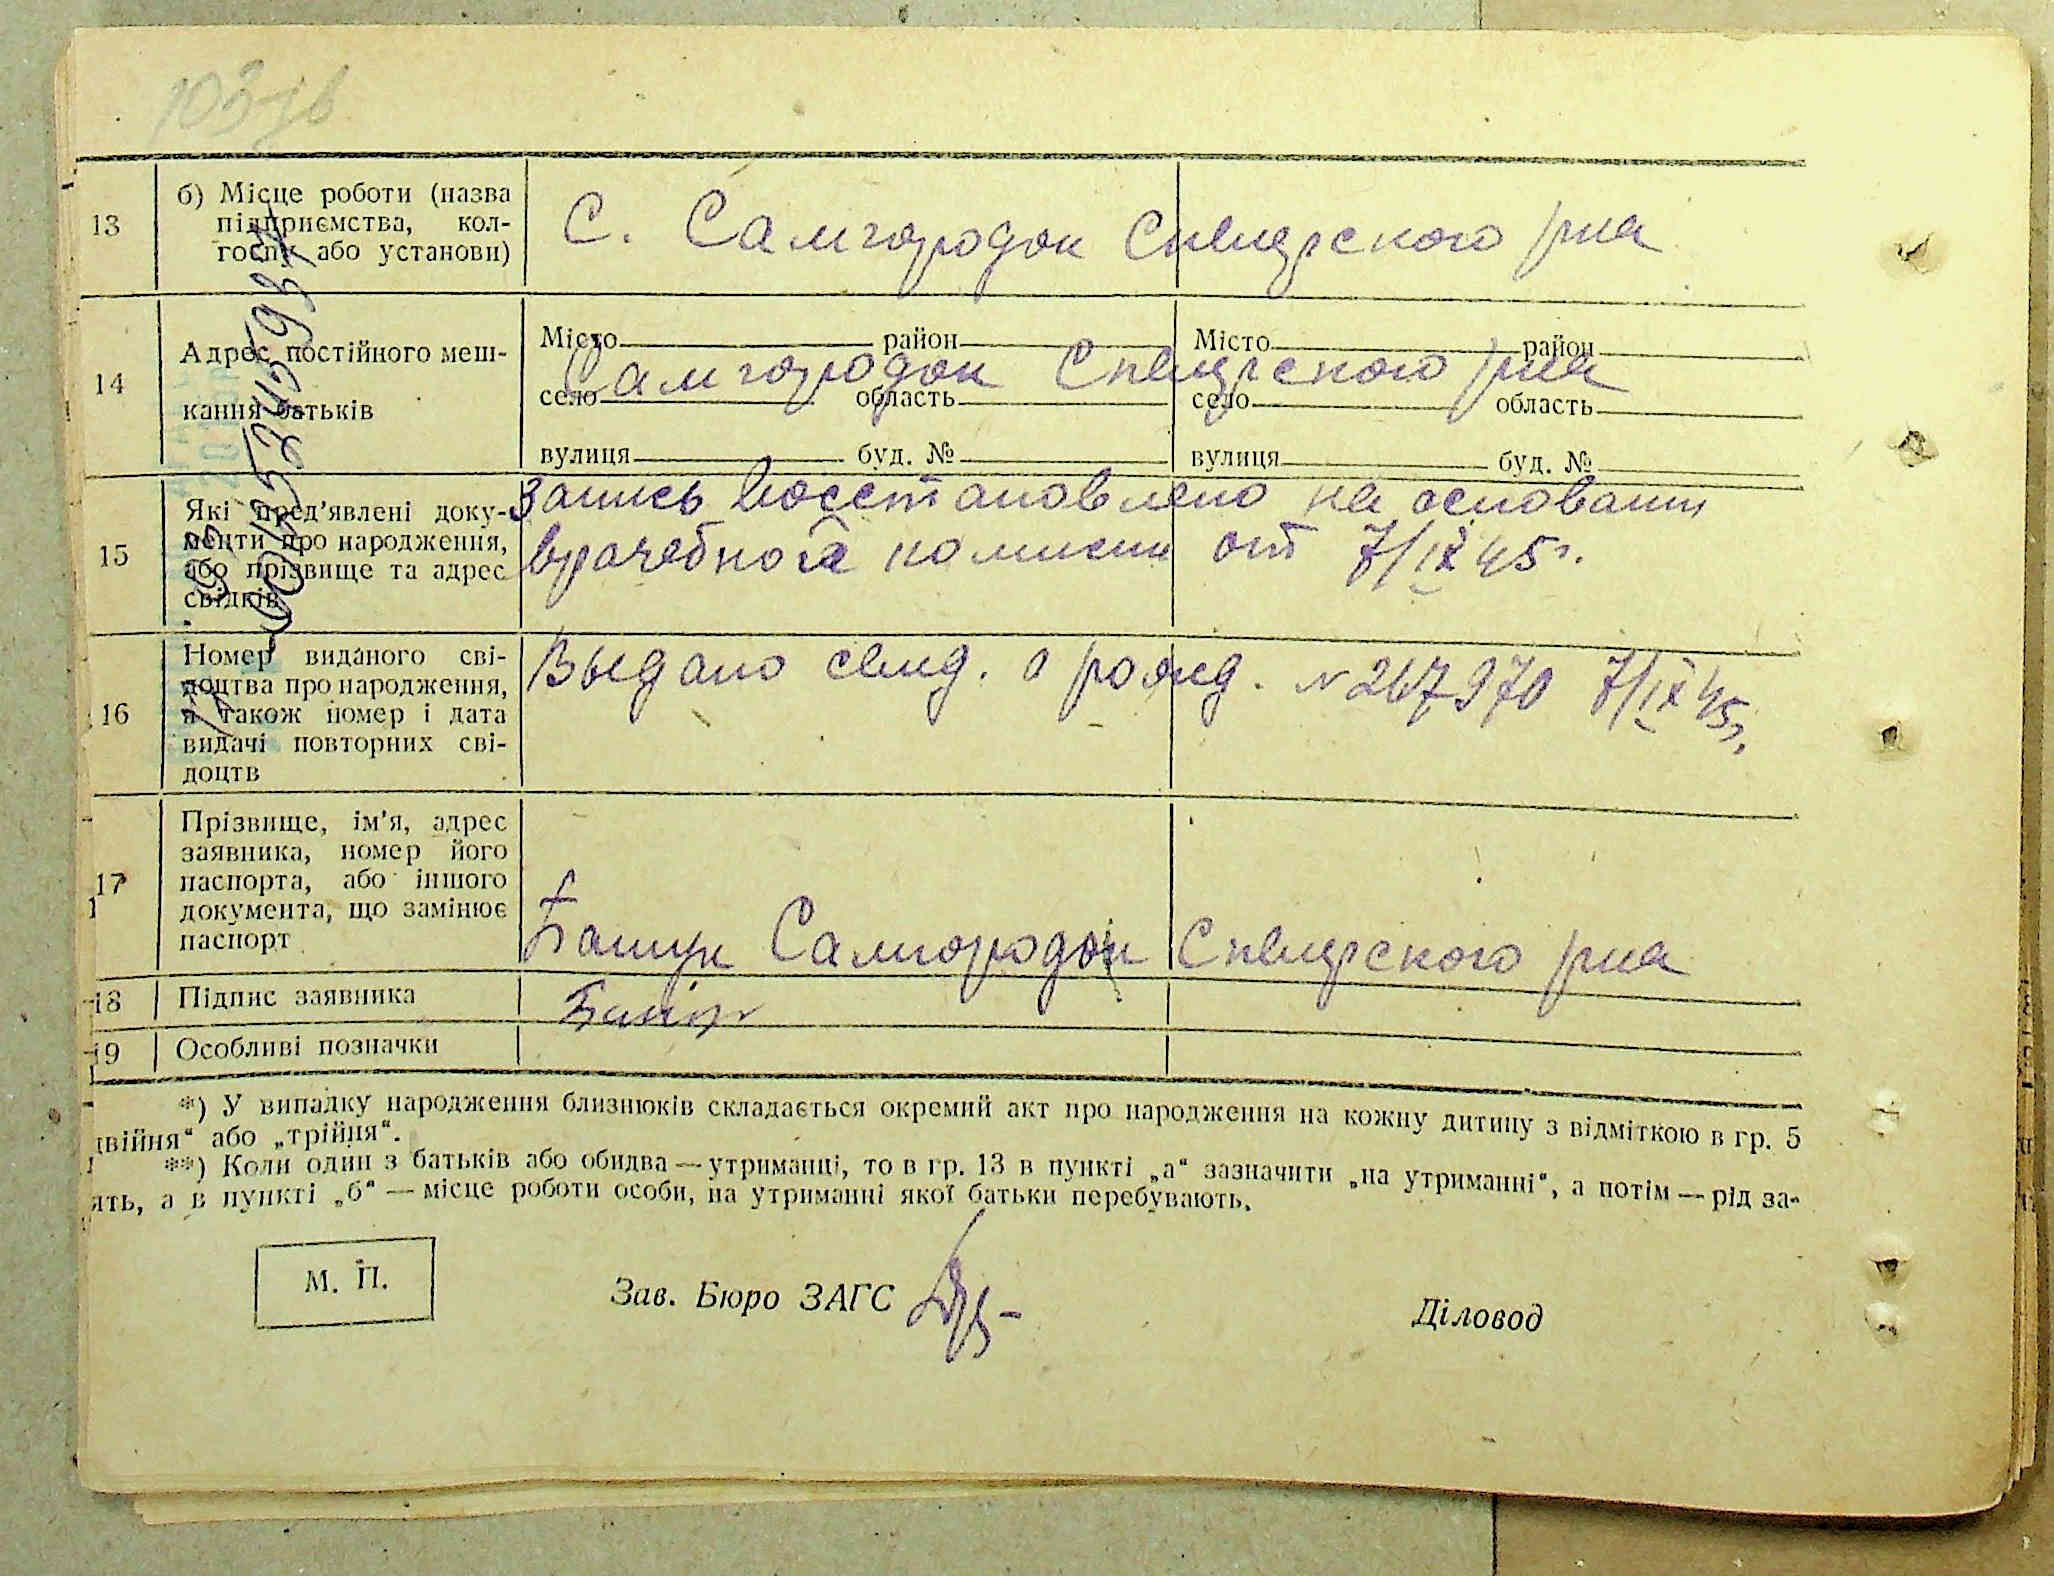 13
б) Місце роботи (назва
підприємства, кол-
госпу або установи)
С. Самгородок Сквирского р-на
14
Адрес постійного меш-
кання батьків
Місто район Місто район
Самгородок Сквирского р-на
село область село область
вулиця буд. № вулиця буд. №
15
Які пред'явлені доку-
менти про народження,
або прізвище та адрес
свідків
запись восстановлено на основании
врачебной комисии от 7/IX 45 г.
16
Номер виданого сві-
доцтва про народження,
а також номер і дата
видачі повторних сві-
доцтв
Выдано свид. о рожд. № 267970 7/IX 45 г.
17
Прізвище, ім'я, адрес
заявника, номер його
паспорта, або іншого
документа, що замінює
паспорт
Самгородок Сквирского р-на
18
Підпис заявника
19
Особливі позначки
*) У випадку народження близнюків складається окремий акт про народження на кожну дитину з відміткою в гр. 5
двійня“ або „трійня“.
**) Коли один з батьків або обидва — утриманці, то в гр. 13 в пункті „а“ зазначити „на утриманні“, а потім — рід за-
ять, а в пункті „б“ — місце роботи особи, на утриманні якої батьки перебувають.
М. П.
Зав. Бюро ЗАГС
Діловод